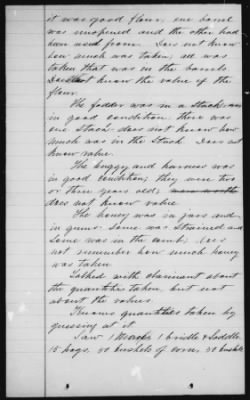 it was good flour. one barrel
was unopened and the other had
been used from. Does not know
how much was taken, all was
taken that was in the barrels.
Does not know the value of the
flour.
The fodder was in a Stack was
in good condition. there was
one Stack. does not know how
much was in the Stack. Does not
know value.
The buggy and harness was
in good condition; they were two
or three years old;
does not know value
The honey was in jars and
in gums. Some was Strained and
Some was in the comb; Does
not remember how much honey
was taken.
Talked with claimant about
the quantities taken, but not
about the values.
Knows quantities taken by
guessing at it.
Saw 1 1 bridle & Saddle
15 hogs, 50 bushels of corn, 30 bushels